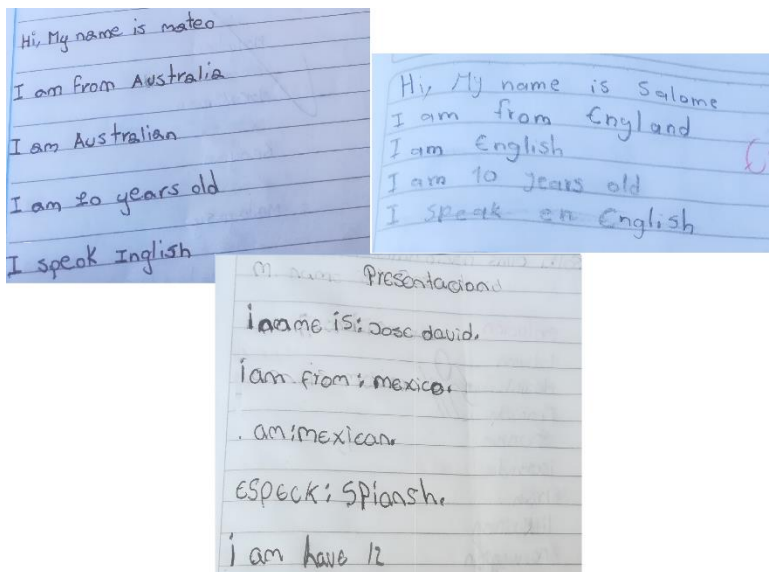 Hi, My name is mateo
I am from Australia
I am Australian
I am 10 years old
I speak Inglish
Hi, My name is Salome
I am from England
I am English
I am 10 years old
I speak en English
Presentacion
i name is: Jose david.
i am from: mexico.
. am: mexican.
ESPECK: Spiansh.
i am have 12